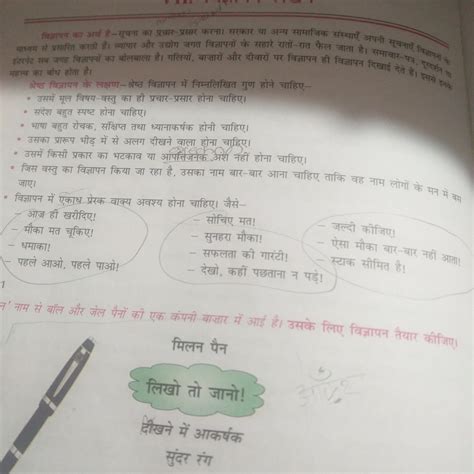 विज्ञापन का अर्थ है–सूचना का प्रचार-प्रसार करना। सरकार या अन्य सामाजिक संस्थाएँ अपनी सूचनाएँ विज्ञापनों के
माध्यम से प्रसारित करती हैं। व्यापार और उद्योग जगत विज्ञापनों के सहारे रातों-रात फैल जाता है। समाचार-पत्र, दूरदर्शन या
इंटरनेट सब जगह विज्ञापनों का बोलबाला है। गलियों, बाजारों और दीवारों पर विज्ञापन ही विज्ञापन दिखाई देते हैं। इससे उनके
महत्त्व का बोध होता है।
श्रेष्ठ विज्ञापन के लक्षण–श्रेष्ठ विज्ञापन में निम्नलिखित गुण होने चाहिए–
• उसमें मूल विषय-वस्तु का ही प्रचार-प्रसार होना चाहिए।
• संदेश बहुत स्पष्ट होना चाहिए।
• भाषा बहुत रोचक, संक्षिप्त तथा ध्यानाकर्षक होनी चाहिए।
• उसका प्रारूप भीड़ में से अलग दीखने वाला होना चाहिए।
• उसमें किसी प्रकार का भटकाव या आपत्तिजनक अंश नहीं होना चाहिए।
• जिस वस्तु का विज्ञापन किया जा रहा है, उसका नाम बार-बार आना चाहिए ताकि वह नाम लोगों के मन में बस
जाए।
• विज्ञापन में एकाध प्रेरक वाक्य अवश्य होना चाहिए। जैसे–
– आज ही खरीदिए!
– मौका मत चूकिए!
– धमाका!
– पहले आओ, पहले पाओ!
– सोचिए मत!
– सुनहरा मौका!
– सफलता की गारंटी!
– देखो, कहीं पछताना न पड़े!
– जल्दी कीजिए!
– ऐसा मौका बार-बार नहीं आता!
– स्टाक सीमित है।
1
न' नाम से बॉल और जेल पैनों की एक कंपनी बाजार में आई है। उसके लिए विज्ञापन तैयार कीजिए।
मिलन पैन
लिखो तो जानो!
दीखने में आकर्षक
सुंदर रंग